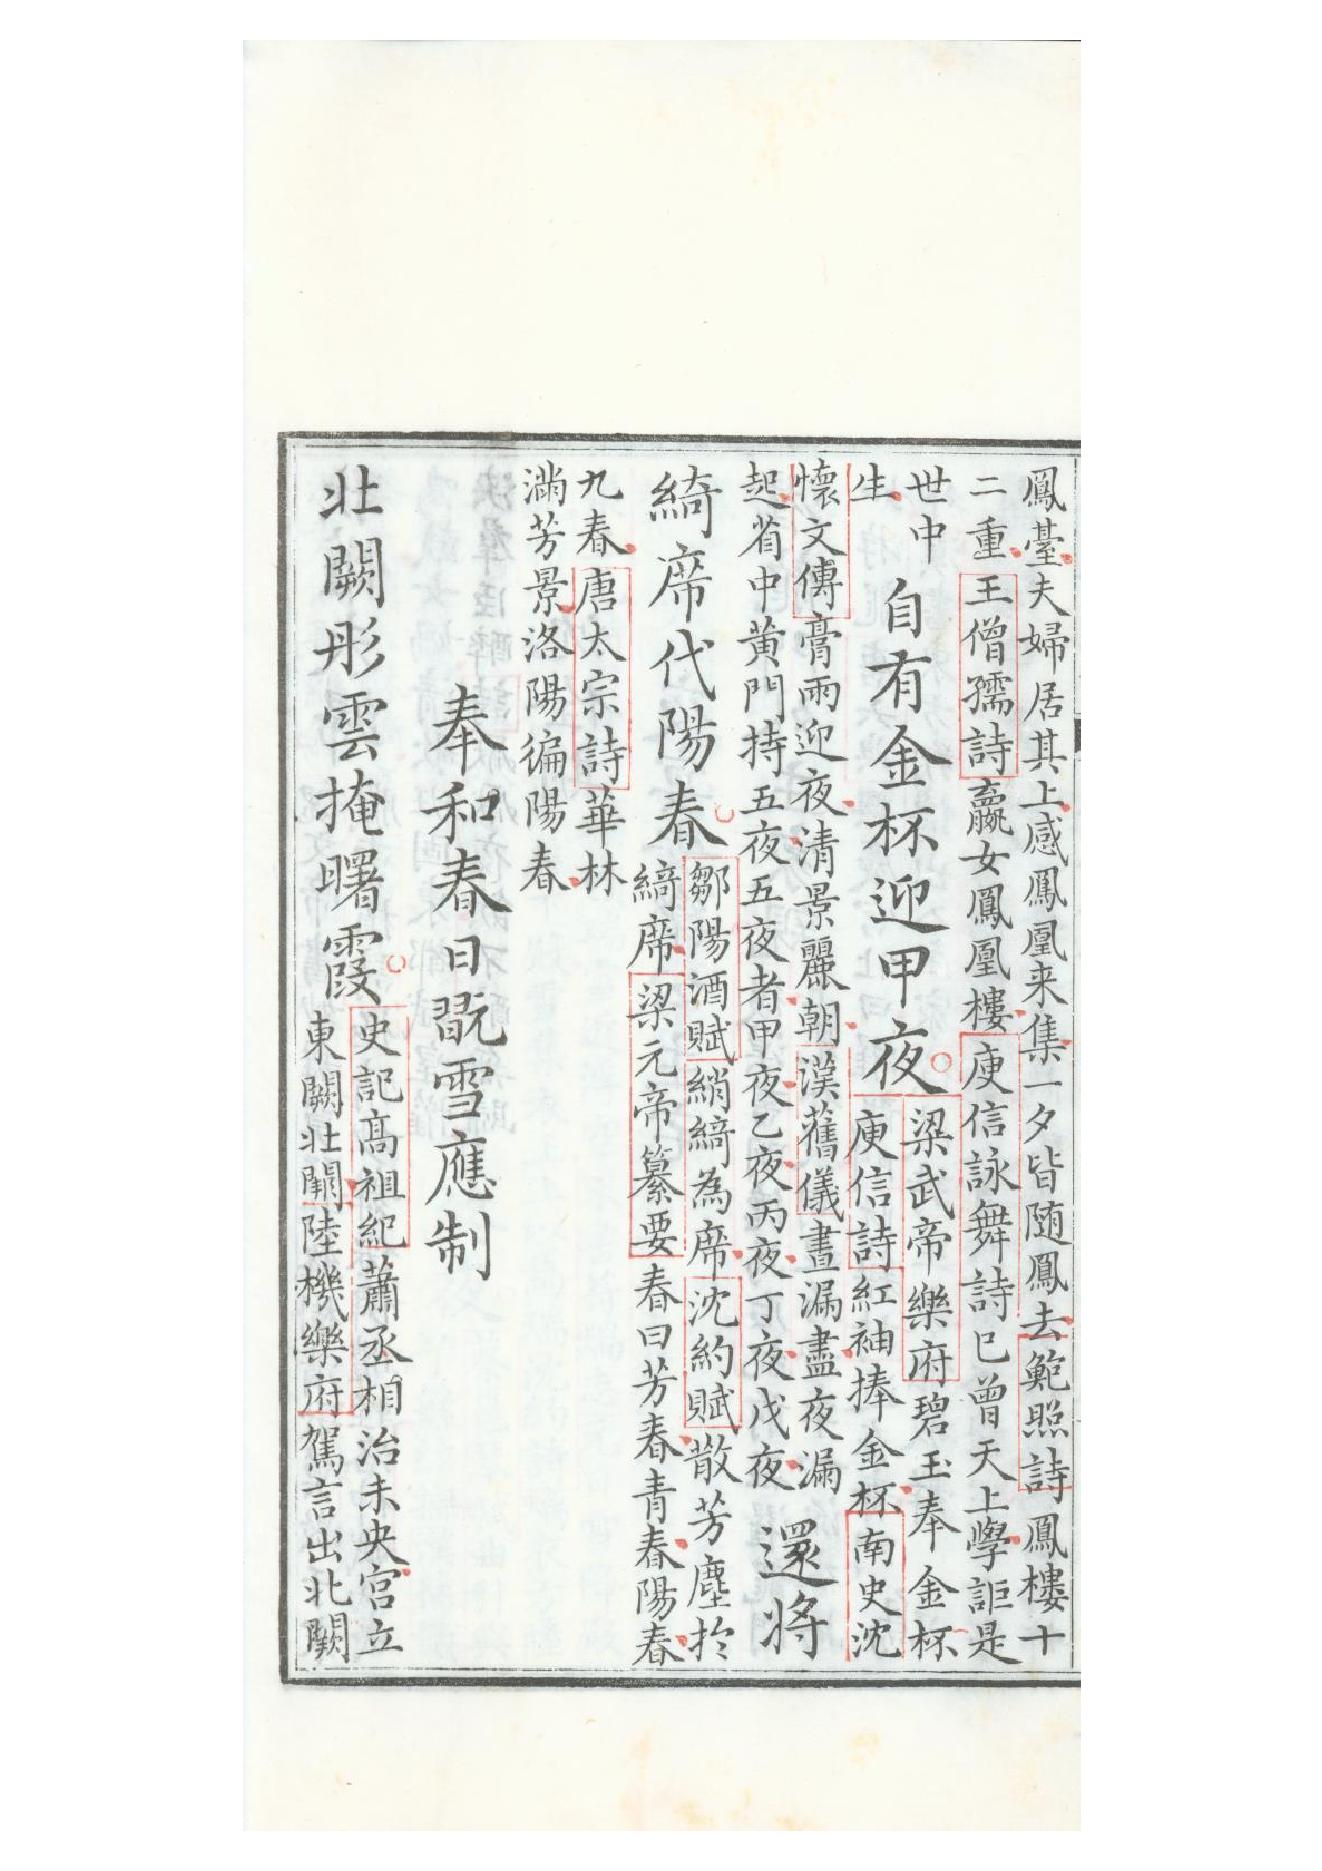 鳳臺夫婦居其上感鳳凰来集一夕皆随鳳去鮑照詩鳳樓十
二重王僧孺詩嬴女鳳凰樓庾信詠舞詩已曾天上學詎是
世中
生
自有金杯迎甲夜
梁武帝樂府碧玉奉金杯
庾信詩紅袖捧金杯南史沈
懷文傳膏雨迎夜清景麗朝漢舊儀晝漏盡夜漏
起省中黄門持五夜五夜者甲夜乙夜丙夜丁夜戊夜
還將
綺席代陽春
鄒陽酒賦綃綺為席沈約賦散芳塵扵
綺席梁元帝纂要春曰芳春青春陽春
九春唐太宗詩華林
滿芳景洛陽徧陽春
奉和春日翫雪應制
北闕彤雲掩曙霞
史記髙祖紀蕭丞相治未央宫立
東闕北闕陸機樂府駕言出北闕